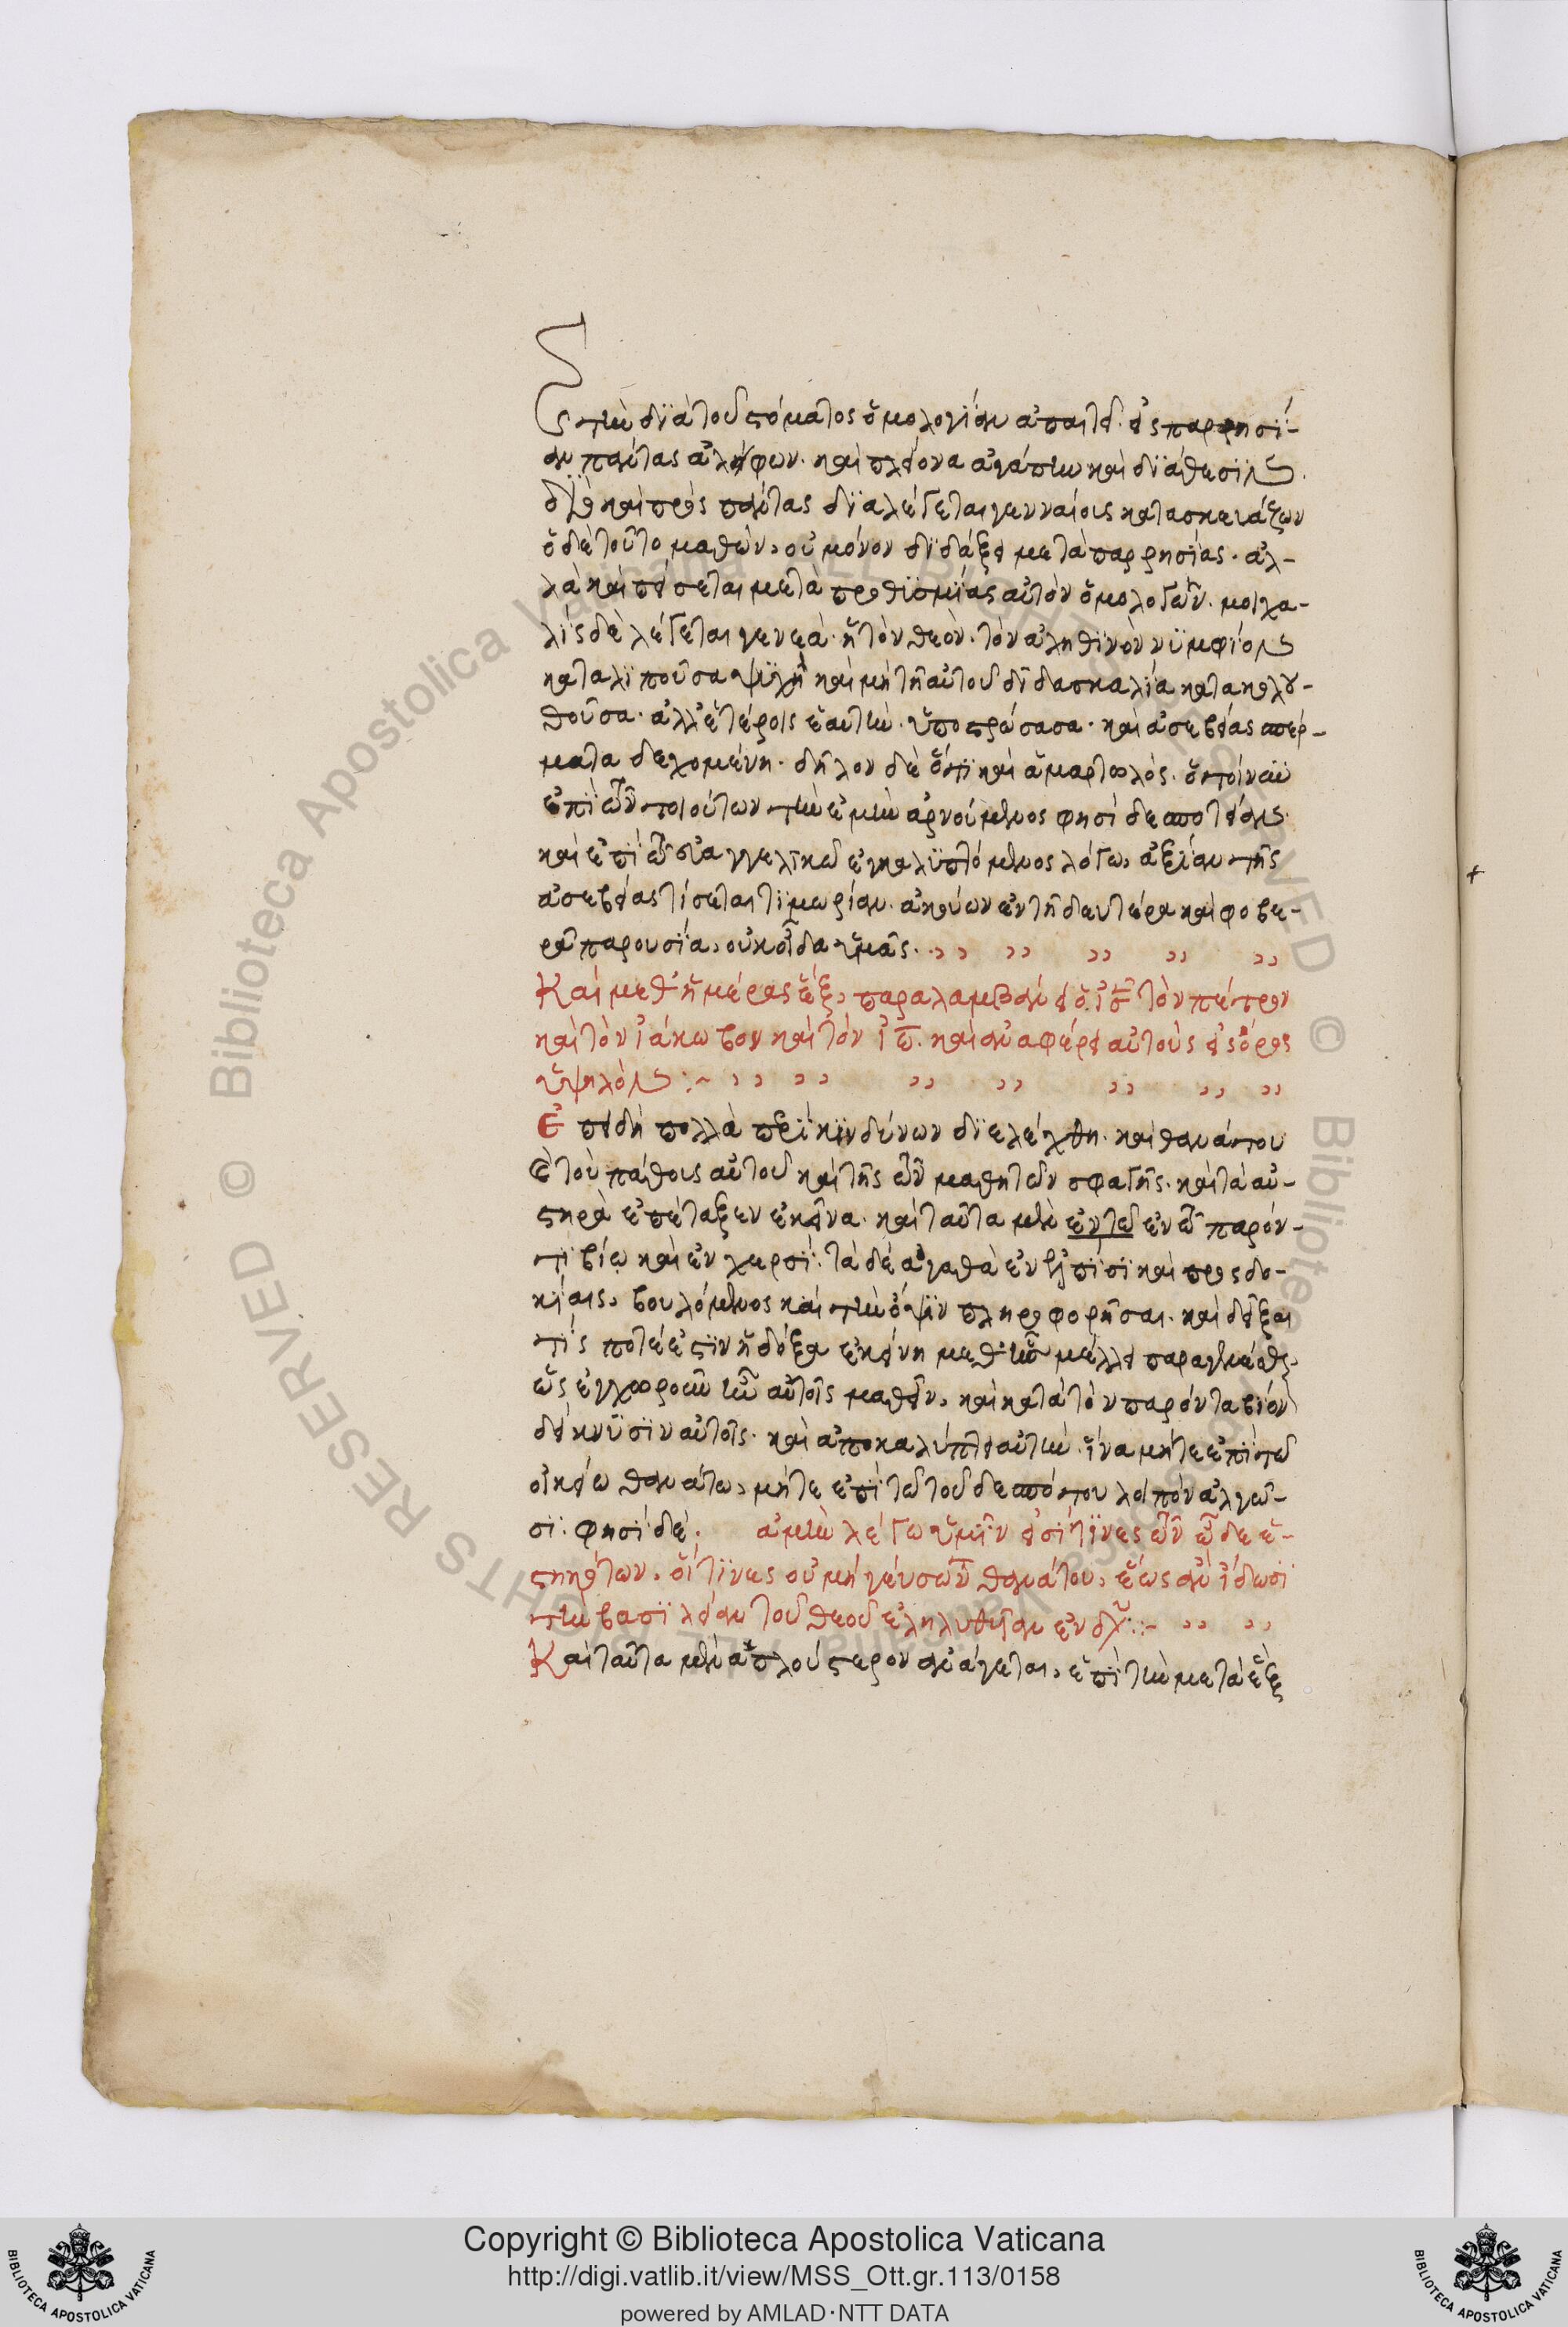 τὴν διὰ τοῦ στόματος ὁμολογίαν ἀπαιτεῖ· εἰς παρρησί-
αν πάντας ἀλείφων· καὶ πλείονα ἀγάπην καὶ διάθεσιν.
διὸ καὶ πρὸς πάντας διαλέγεται γενναίους κατασκευάζων
ὁ δὲ τοῦτο μαθὼν, οὐ μόνον διδάξει μετὰ παρρησίας· ἀλ-
λὰ καὶ πείσεται μετὰ προθυμίας αὐτὸν ὁμολογῶν. μοιχα-
λὶς δὲ λέγεται γενεὰ· ἡ τὸν θεὸν· τὸν ἀληθινὸν νυμφίον
καταλιποῦσα ψυχὴ καὶ μὴ τῇ αὐτοῦ διδασκαλία κατακολου-
θοῦσα· ἀλλ' ἑτέροις ἑαυτὴν· ὑποστρώσασα· καὶ ἀσεβείας σπέρ-
ματα δεχομένη· δῆλον δὲ ὅτι καὶ ἁμαρτωλός·
ἐπὶ τῶν τοιούτων τὴν ἐμὴν ἀρνούμενος φησὶ δεσποτείαν
καὶ ἐπὶ τῶ εὐαγγελικῶ ἐγκαλυπτόμενος λόγω, ἀξίαν τῆς
ἀσεβείας τίσεται τιμωρίαν· ἀκούων ἐν τῇ δευτέρα καὶ φοβε-
ρᾶ παρουσία, οὐκ οἶδα ὑμᾶς. ,, ,, ,, ,, ,,
Καὶ μεθ' ἡμέρας ἓξ, παραλαμβάνει ὁ ἰς τὸν πέτρον
καὶ τὸν ἰάκωβον καὶ τὸν ἰω. καὶ ἀναφέρει αὐτοὺς εἰς ὄρος
ὑψηλὸν :~ ,, ,, ,, ,, ,, ,, ,,
Ἐπειδὴ πολλὰ περὶ κινδύνων διελέχθη· καὶ θανάτου
καὶ τοῦ πάθους αὐτοῦ καὶ τῆς τῶν μαθητῶν σφαγῆς· καὶ τὰ αὐ-
στηρὰ ἐπέταξεν ἐκεῖνα· καὶ ταῦτα μὲν ἐν τῶ ἐν τῶ παρόν-
τι βίω καὶ ἐν χερσί· τὰ δὲ ἀγαθὰ ἐν ἐλπίσι καὶ προσδο-
κίαις, βουλόμενος καὶ τὴν ὄψιν πληροφορῆσαι· καὶ δεῖξαι
τίς ποτέ ἐστιν ἡ δόξα ἐκείνη μεθ' ἧς μέλλει παραγίνεσθαι,
ὡς ἐγχωροῦν ἦν αὐτοῖς μαθεῖν, καὶ κατὰ τὸν παρόντα βίον
δείκνυσιν αὐτοῖς· καὶ ἀποκαλύπτει αὐτὴν· ἵνα μήτε ἐπὶ τῶ
οἰκείω θανάτω, μήτε ἐπὶ τῶ τοῦ δεσπότου λοιπὸν ἀλγῶ-
σι· φησὶ δέ· ἀμὴν λέγω ὑμῖν εἰσί τινες τῶν ὧδε ἑ-
στηκότων, οἵτινες οὐ μὴ γεύσωνται θανάτου, ἕως ἂν ἴδωσι
τὴν βασιλείαν τοῦ θεοῦ ἐληλυθυῖαν ἐν δυ :- ,, ,,
Καὶ ταῦτα μὲν ἁπλούστερον ἀνάγεται, ἐπὶ τὴν μετὰ ἓξ
Copyright © Biblioteca Apostolica Vaticana
http://digi.vatlib.it/view/MSS_Ott.gr.113/0158
powered by AMLAD·NTT DATA